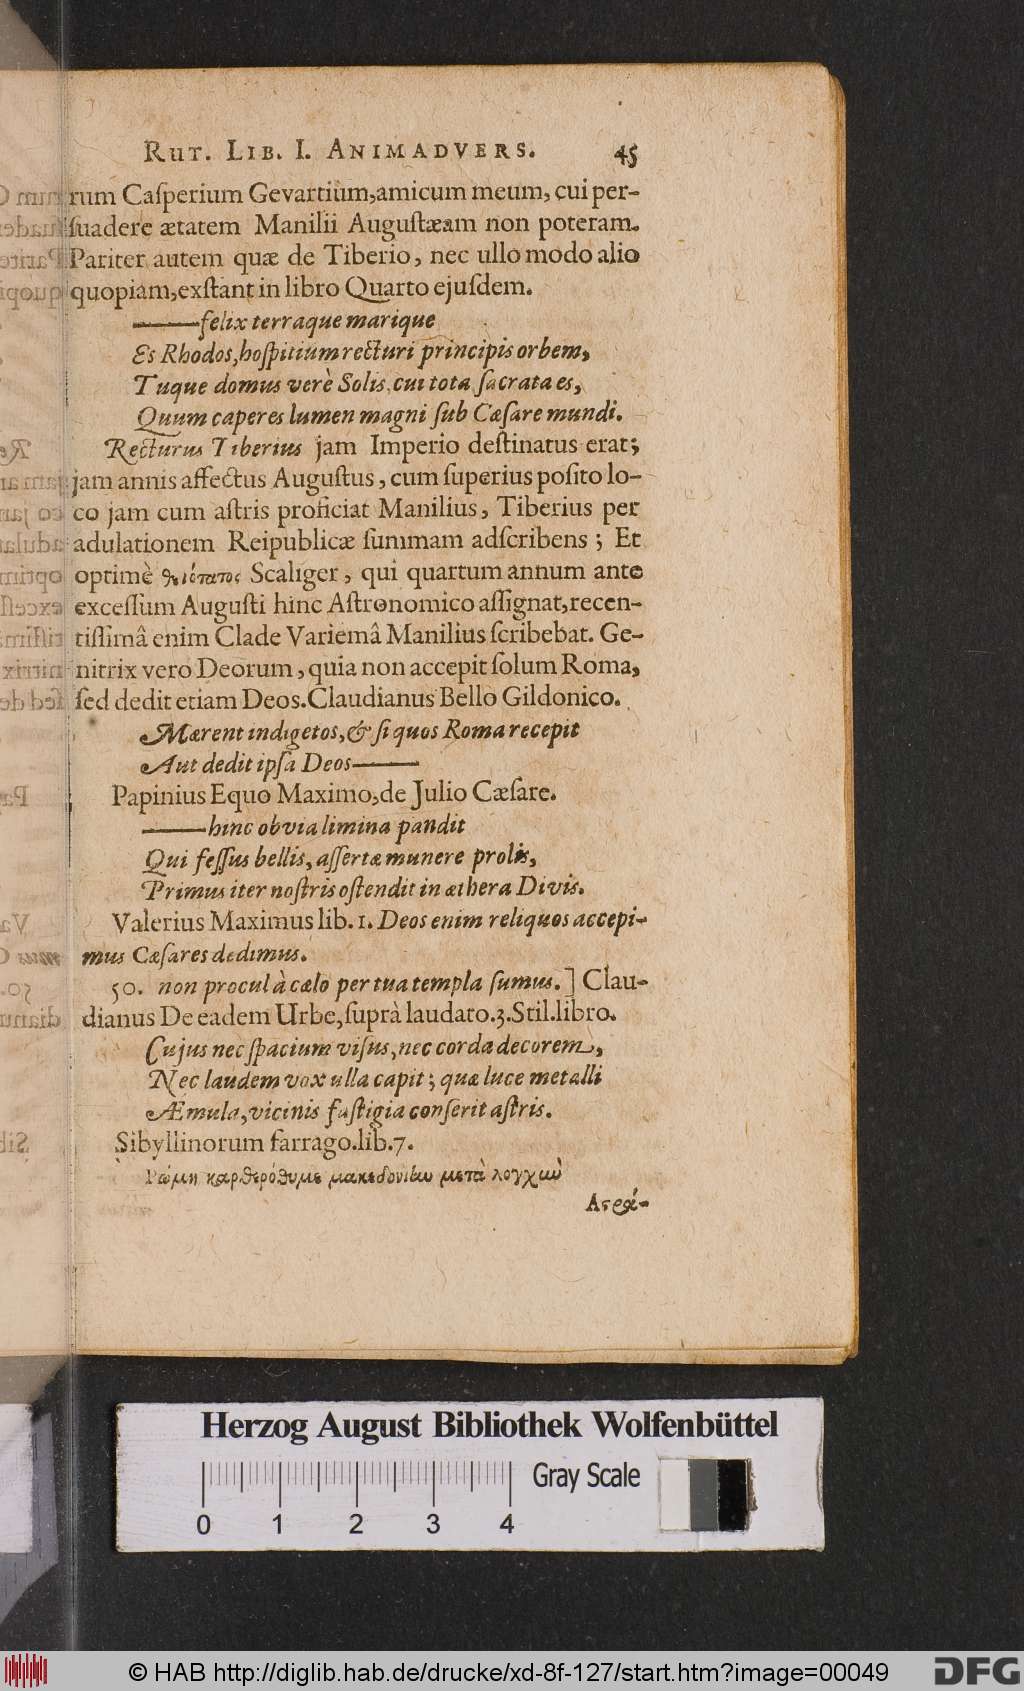 RUT. LIB. I. ANIMADVERS. 45
rum Caſperium Gevartium, amicum meum, cui per-
ſuadere ætatem Manilii Auguſtæam non poteram.
Pariter autem quæ de Tiberio, nec ullo modo alio
quopiam, exſtant in libro Quarto ejuſdem.
——felix terraque marique
Es Rhodos, hoſpitium recturi principis orbem,
Tuque domus verè Solis, cui tota ſacrata es,
Quum caperes lumen magni ſub Cæſare mundi.
Recturus Tiberius jam Imperio deſtinatus erat;
jam annis affectus Auguſtus, cum ſuperius poſito lo-
co jam cum aſtris proficiat Manilius, Tiberius per
adulationem Reipublicæ ſummam adſcribens; Et
optimè θειότατος Scaliger, qui quartum annum ante
exceſſum Auguſti hinc Aſtronomico aſſignat, recen-
tiſſimâ enim Clade Variemâ Manilius ſcribebat. Ge-
nitrix vero Deorum, quia non accepit ſolum Roma,
ſed dedit etiam Deos. Claudianus Bello Gildonico.
Mærent indigetos, & ſi quos Roma recepit
Aut dedit ipſa Deos——
Papinius Equo Maximo, de Julio Cæſare.
——hinc obvia limina pandit
Qui feſſus bellis, aſſertæ munere prolis,
Primus iter noſtris oſtendit in æthera Divis.
Valerius Maximus lib. 1. Deos enim reliquos accepi-
mus Cæſares dedimus.
50. non procul à cælo per tua templa ſumus.] Clau-
dianus De eadem Urbe, ſuprà laudato. 3. Stil. libro.
Cujus nec ſpacium viſus, nec corda decorem,
Nec laudem vox ulla capit; quæ luce metalli
Æmula, vicinis faſtigia conſerit aſtris.
Sibyllinorum farrago. lib. 7.
Ρώμη καρθερόθυμε μακεδονίην μετὰ λογχην
Αςρά-
Herzog August Bibliothek Wolfenbüttel
Gray Scale
0 1 2 3 4
© HAB http://diglib.hab.de/drucke/xd-8f-127/start.htm?image=00049
DFG